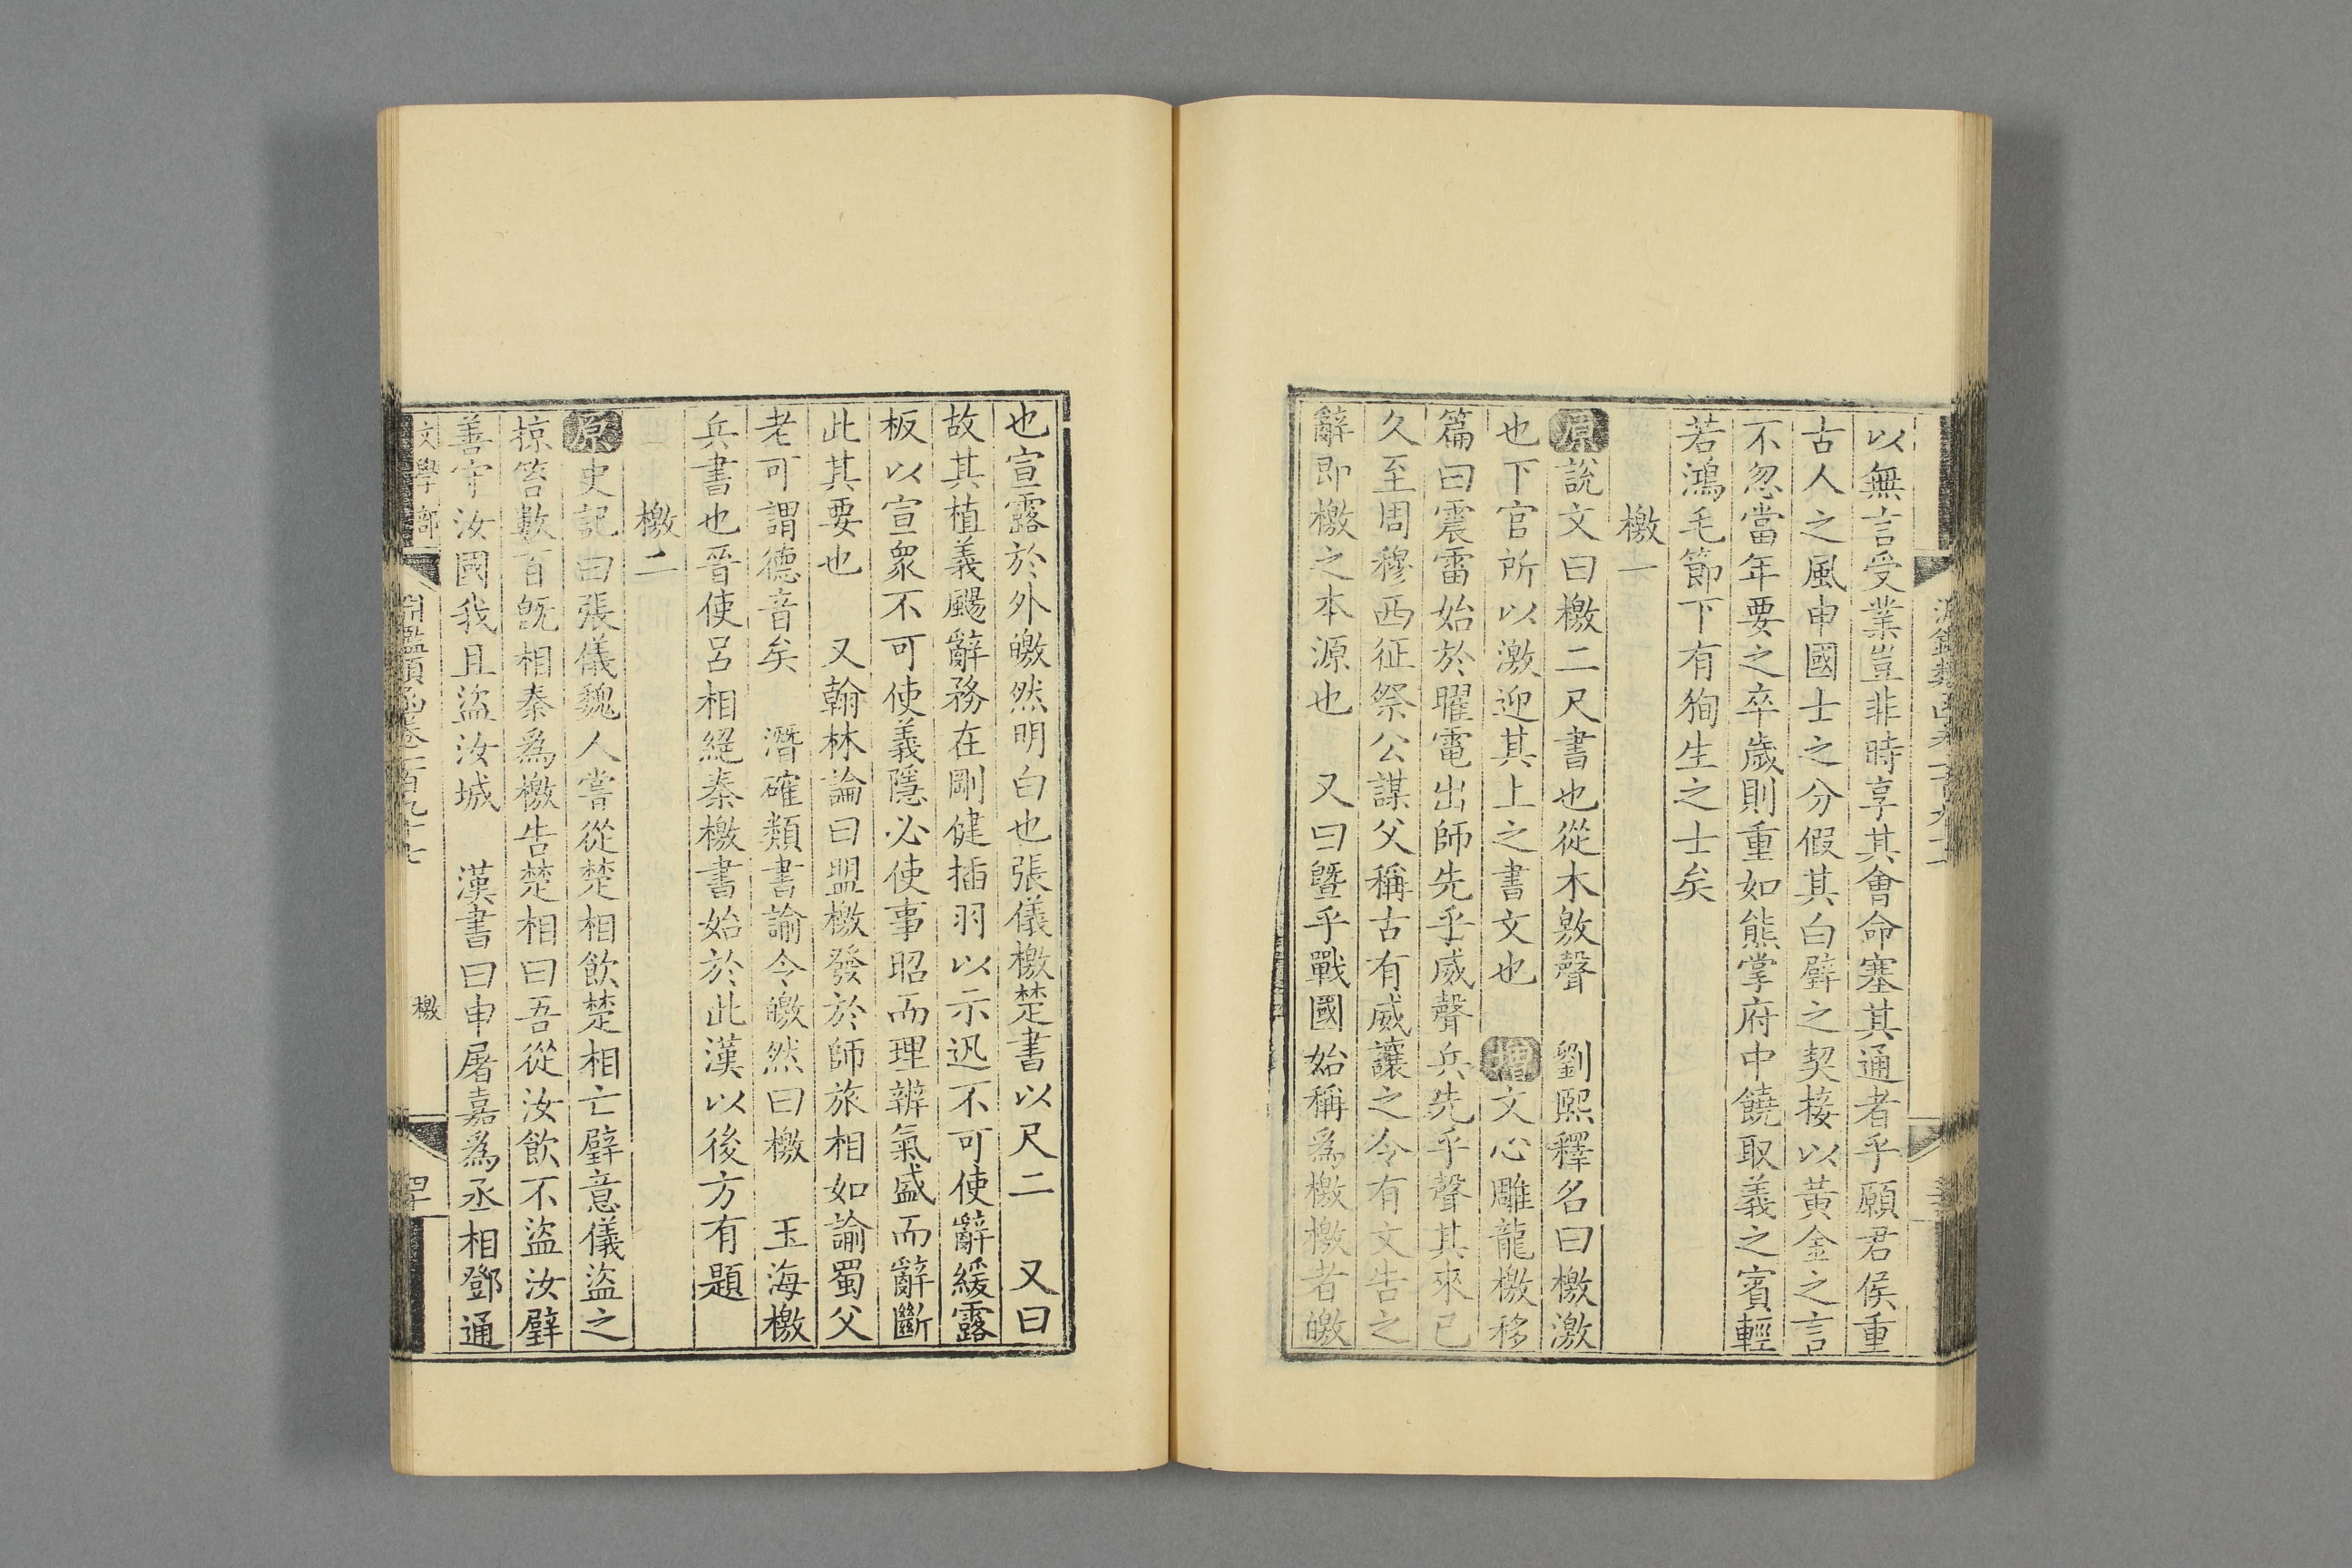 以無言受業豈非時享其會命塞其通者乎願君侯重
古人之風申國士之分假其白璧之契接以黃金之言
不忽當年要之卒歲則重如熊掌府中饒取義之賓輕
若鴻毛節下有狥生之士矣
檄一
原說文曰檄二尺書也從木敫聲　劉熙釋名曰檄激
也下官所以激迎其上之書文也　增文心雕龍檄移
篇曰震雷始於曜電出師先乎威聲兵先乎聲其來已
久至周穆西征祭公謀父稱古有威讓之令有文告之
辭即檄之本源也　又曰曁乎戰國始稱爲檄檄者皦
也宣露於外皦然明白也張儀檄楚書以尺二　又曰
故其植義颺辭務在剛健插羽以示迅不可使辭緩露
板以宣衆不可使義隱必使事昭而理辨氣盛而辭斷
此其要也　又翰林論曰盟檄發於師旅相如諭蜀父
老可謂德音矣　潛確類書諭令皦然曰檄　玉海檄
兵書也晉使呂相絕秦檄書始於此漢以後方有題
檄二
原史記曰張儀魏人嘗從楚相飲楚相亡璧意儀盜之
掠笞數百旣相秦爲檄告楚相曰吾從汝飲不盜汝璧
善守汝國我且盜汝城　漢書曰申屠嘉爲丞相鄧通
文學部
檄